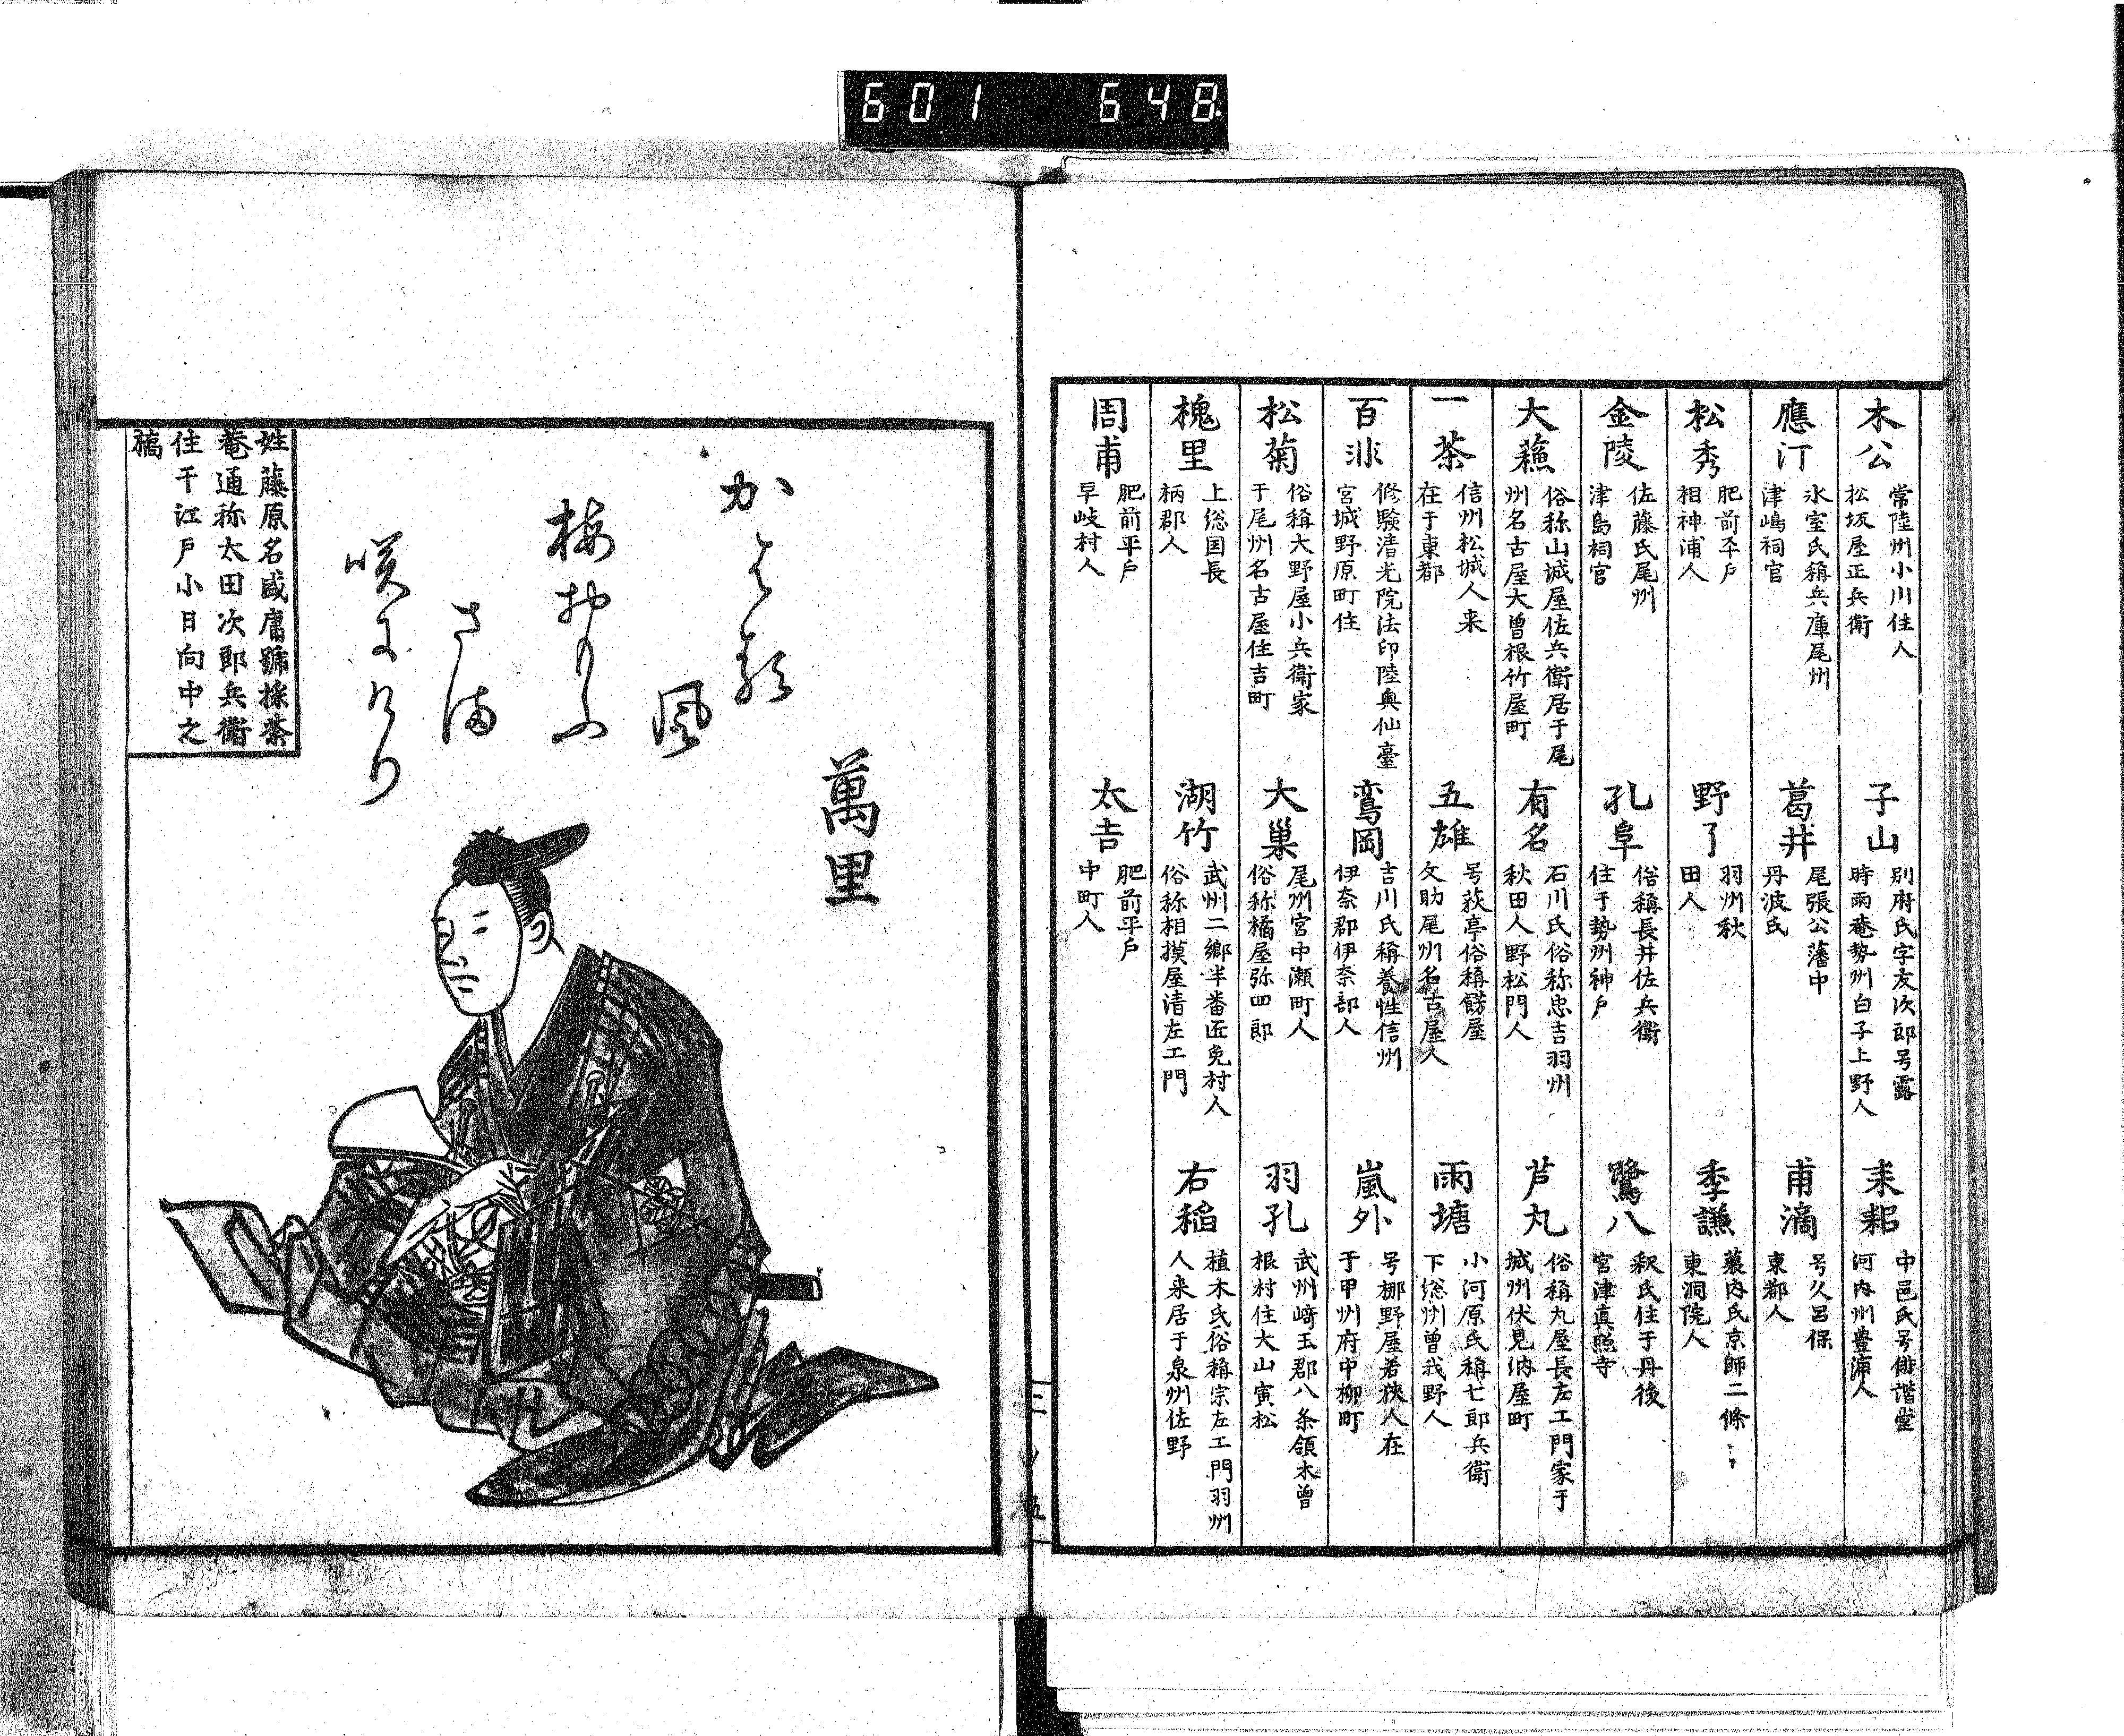 601 648
木公
常陸州小川住人
松坂屋正兵衛
子山
別府氏字友次郎号露
時雨菴勢州白子上野人
耒耜
中邑氏号俳諧堂
河内州豊浦人
應汀
氷室氏稱兵庫尾州
津嶋祠官
葛井
尾張公藩中
丹波氏
甫滴
号久呂保
東都人
松秀
肥前平戶
相神浦人
野了
羽州秋
田人
季謙
蓑内氏京師二條
東洞院人
金陵
佐藤氏尾州
津島祠官
孔阜
俗稱長井佐兵衛
住于勢州神戶
鷺八
釈氏住于丹後
宮津真照寺
大蘓
俗称山城屋佐兵衛居于尾
州名古屋大曽根竹屋町
有名
石川氏俗称忠吉羽州
秋田人野松門人
芦丸
俗稱丸屋長左工門家于
城州伏見納屋町
一茶
信州松城人来
在于東都
五雄
号荻亭俗稱餝屋
文助尾州名古屋人
雨塘
小河原氏稱七郎兵衛
下総州曽我野人
百非
修験清光院法印陸奥仙臺
宮城野原町住
鸞岡
吉川氏稱養性信州
伊奈郡伊奈部人
嵐外
号梛野屋若狭人在
于甲州府中柳町
松菊
俗稱大野屋小兵衛家
于尾州名古屋住吉町
大巢
尾州宮中瀬町人
俗称橘屋弥四郎
羽孔
武州﨑玉郡八条領木曽
根村住大山寅松
槐里
上総国長
柄郡人
湖竹
武州二郷半番匠免村人
俗称相摸屋清左工門
右稲
植木氏俗稱宗左工門羽州
人来居于泉州佐野
周甫
肥前平戶
早岐村人
太吉
肥前平戶
中町人
三ノ五
萬里
かはる
風
梅おもふ
さま
咲にけり
姓藤原名盛庸号採荼
菴通称太田次郎兵衛
住于江戶小日向中之
橋